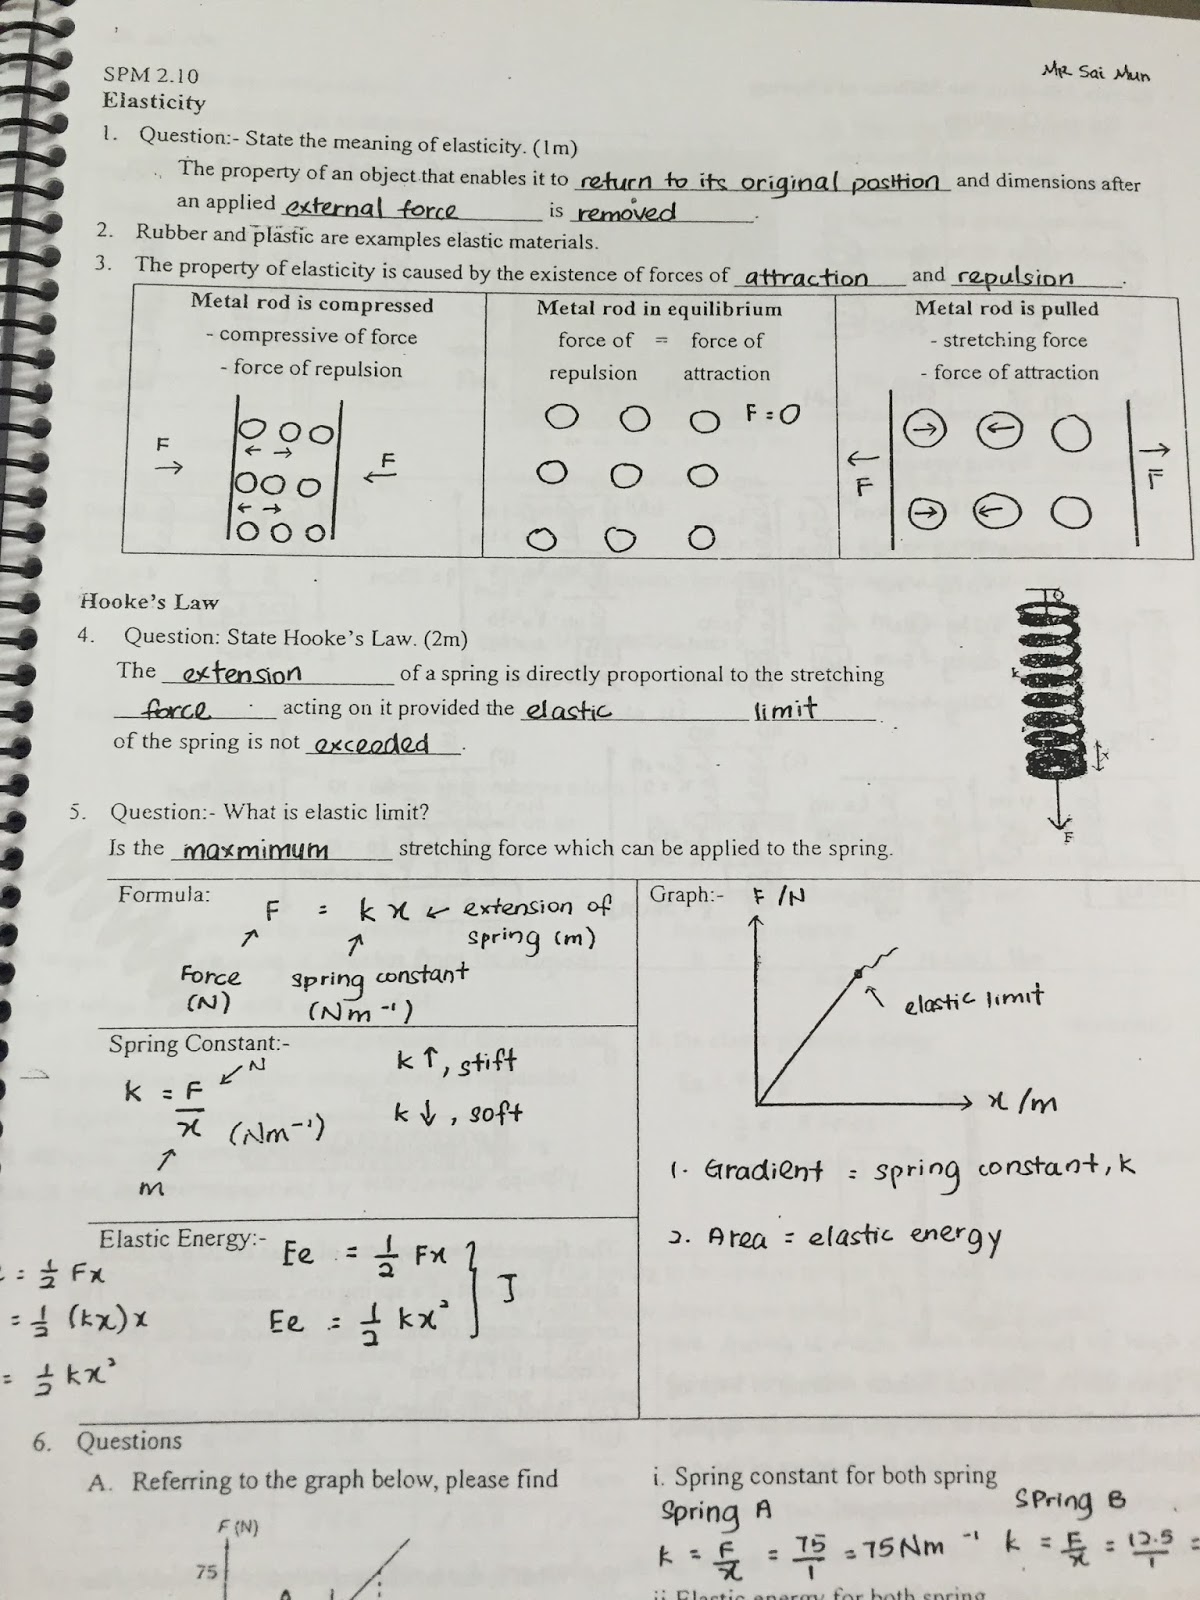 SPM 2.10
Mr Sai Mun
Elasticity
1. Question:- State the meaning of elasticity. (1m)
The property of an object that enables it to return to its original position and dimensions after
an applied external force is removed.
2. Rubber and plastic are examples elastic materials.
3. The property of elasticity is caused by the existence of forces of attraction and repulsion.
Metal rod is compressed
- compressive of force
- force of repulsion
F →
← F
Metal rod in equilibrium
force of = force of
repulsion attraction
F = 0
Metal rod is pulled
- stretching force
- force of attraction
← F
→ F
Hooke's Law
4. Question: State Hooke's Law. (2m)
The extension of a spring is directly proportional to the stretching
force acting on it provided the elastic limit
of the spring is not exceeded.
k
x
F
5. Question:- What is elastic limit?
Is the maxmimum stretching force which can be applied to the spring.
Formula:
F = kx ← extension of
spring (m)
Force
(N)
spring constant
(Nm⁻¹)
Graph:- F/N
elastic limit
x/m
1. Gradient = spring constant, k
2. Area = elastic energy
Spring Constant:-
k = F/x (Nm⁻¹)
N
m
k ↑, stift
k ↓, soft
Elastic Energy:-
Ee = 1/2 Fx
Ee = 1/2 kx²
} J
= 1/2 Fx
= 1/2 (kx)x
= 1/2 kx²
6. Questions
A. Referring to the graph below, please find
F (N)
75
A
i. Spring constant for both spring
Spring A
k = F/x = 75/1 = 75Nm⁻¹
Spring B
k = F/x = 12.5/1 =
ii Elastic energy for both spring